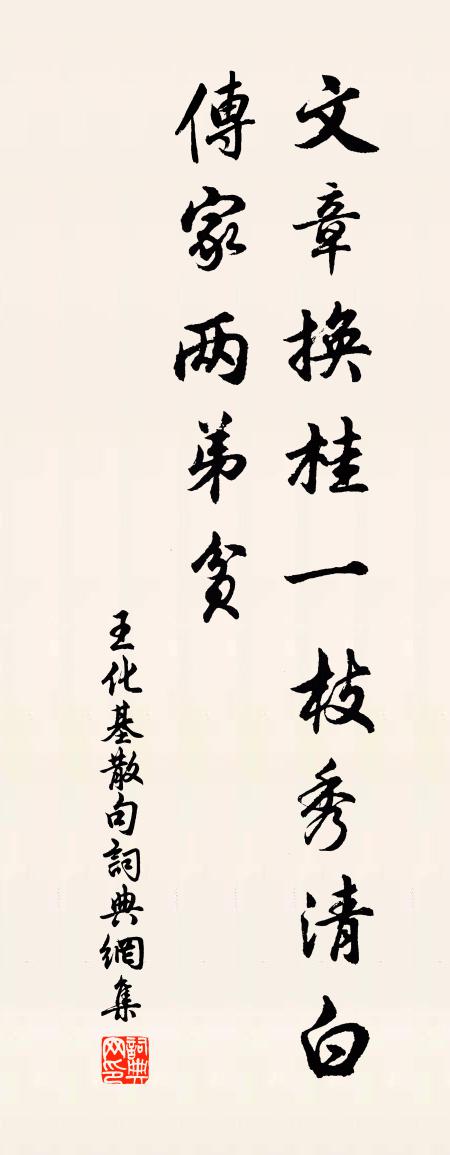 文章換桂一枝秀清白
傳家两弟貧
王化基散句詞典網集
詞典网印